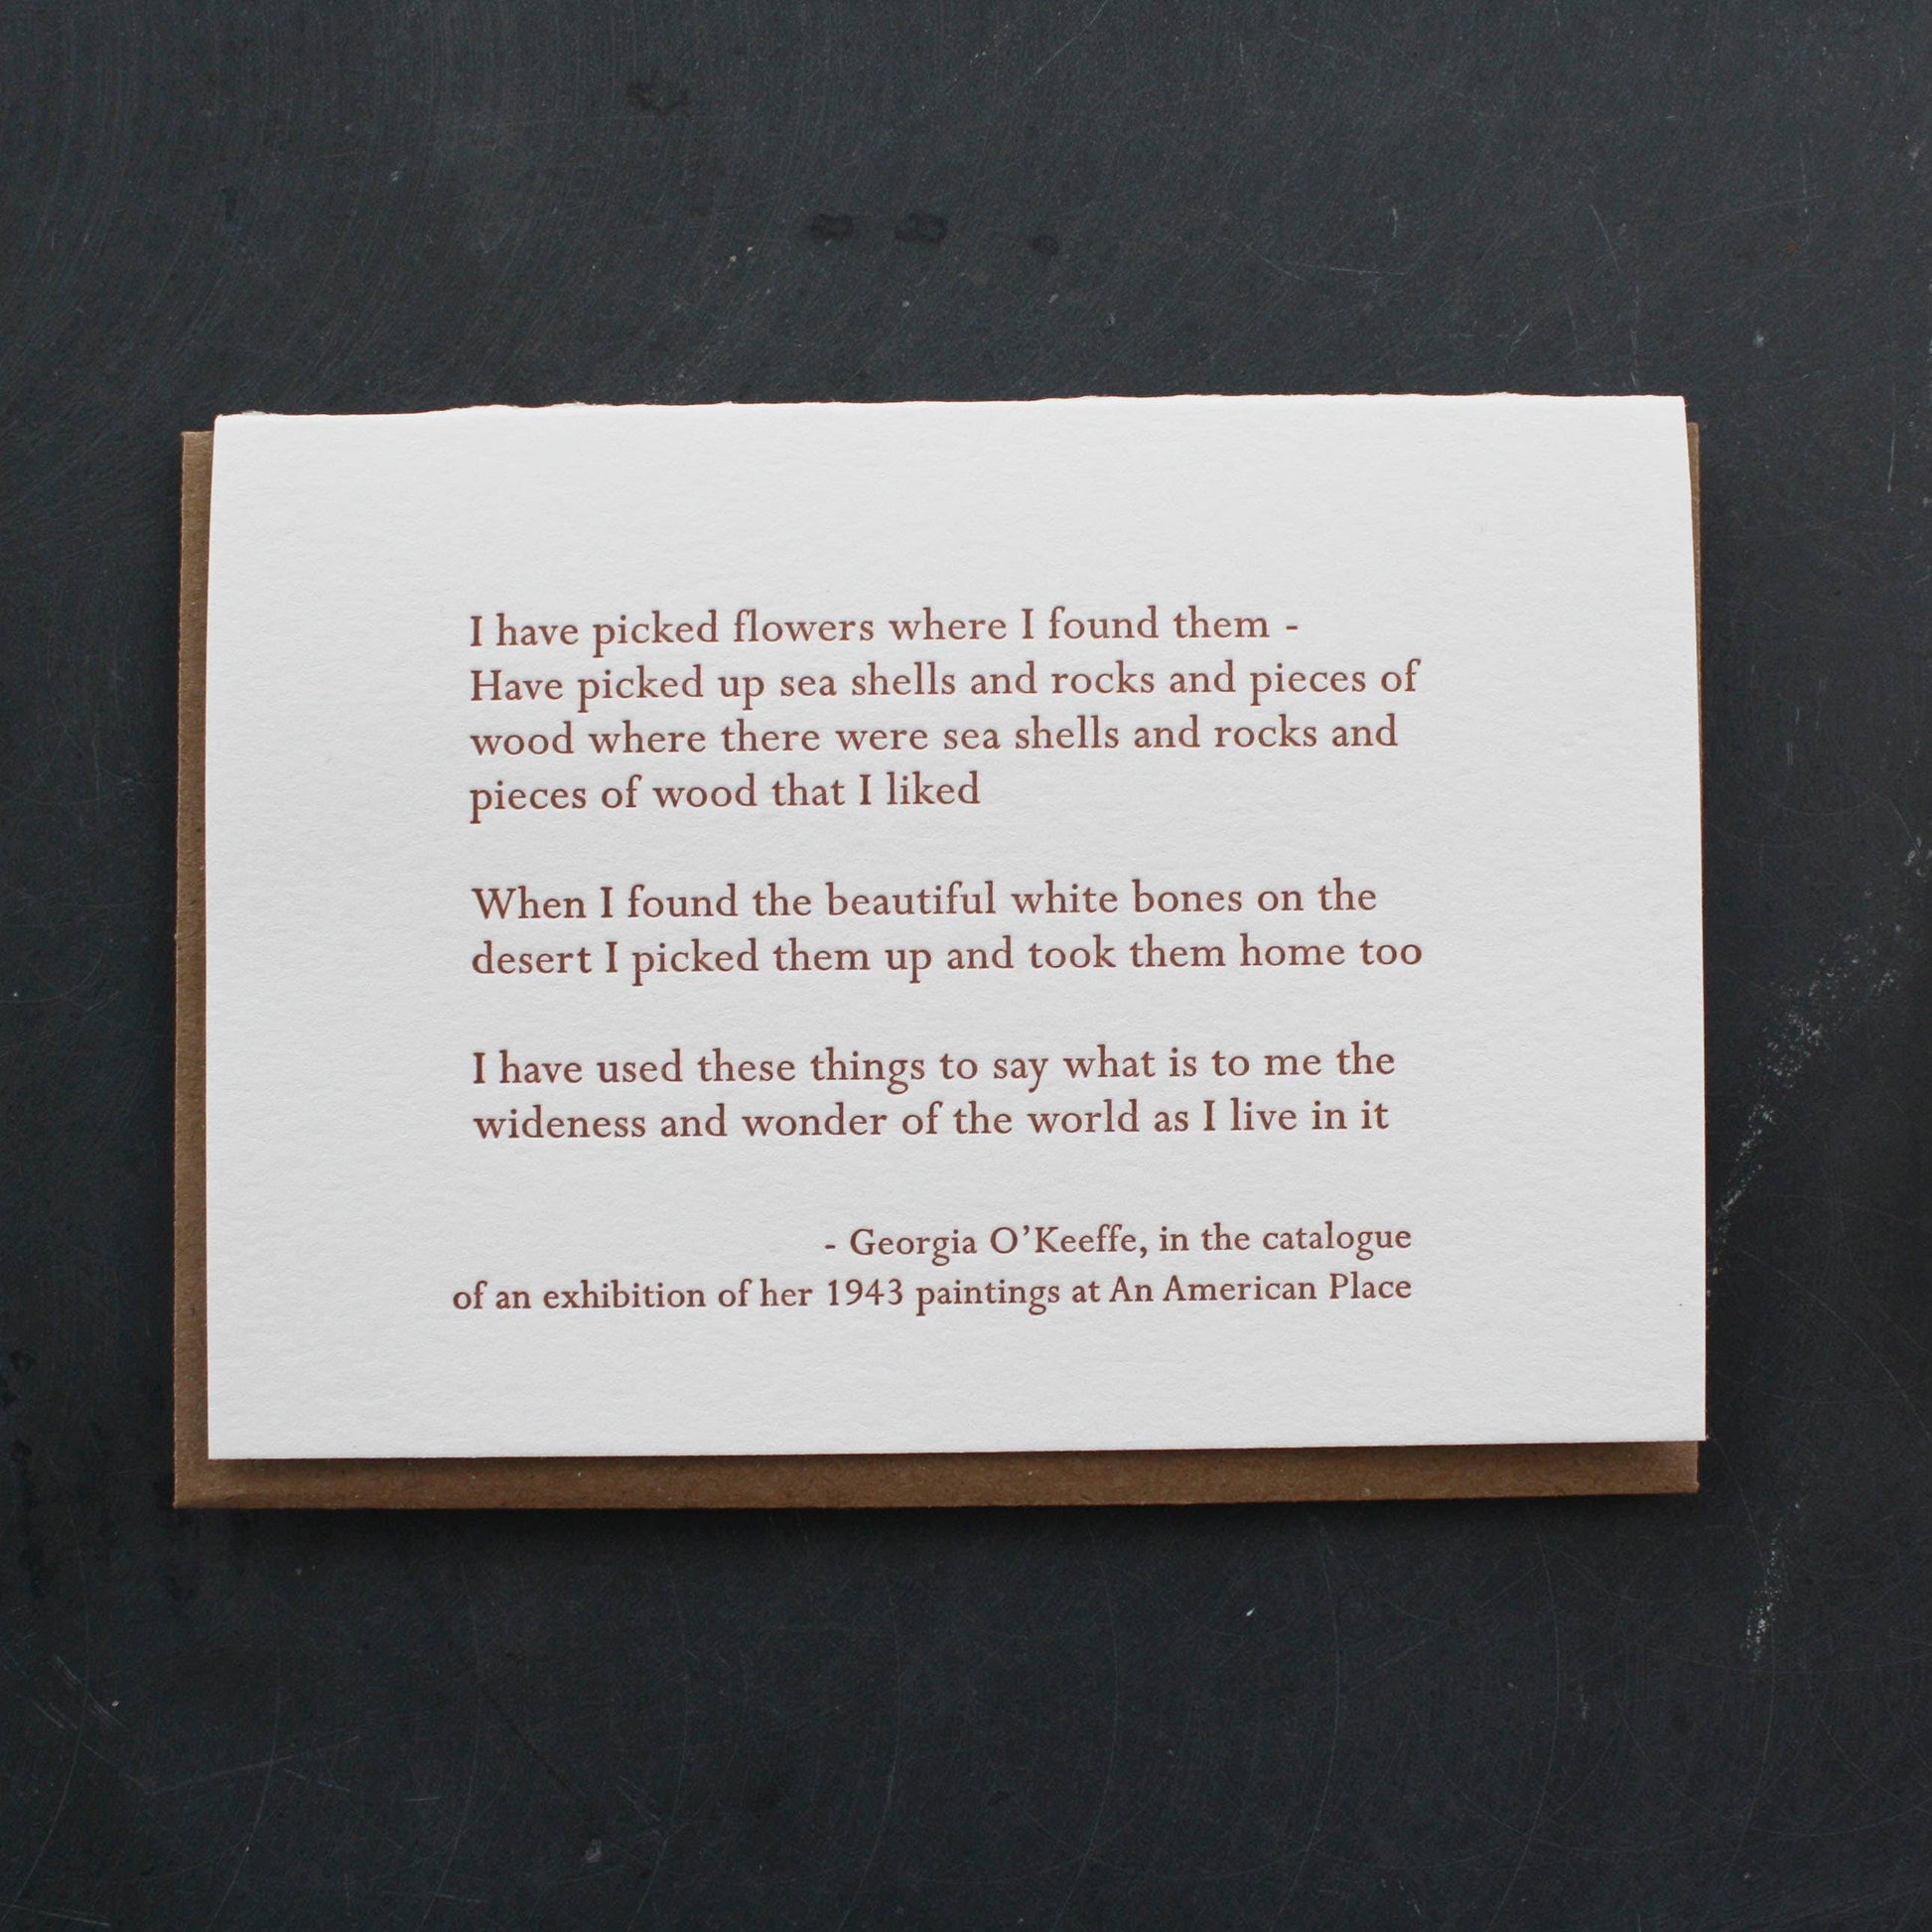 I have picked flowers where I found them -
Have picked up sea shells and rocks and pieces of
wood where there were sea shells and rocks and
pieces of wood that I liked
When I found the beautiful white bones on the
desert I picked them up and took them home too
I have used these things to say what is to me the
wideness and wonder of the world as I live in it
- Georgia O’Keeffe, in the catalogue
of an exhibition of her 1943 paintings at An American Place